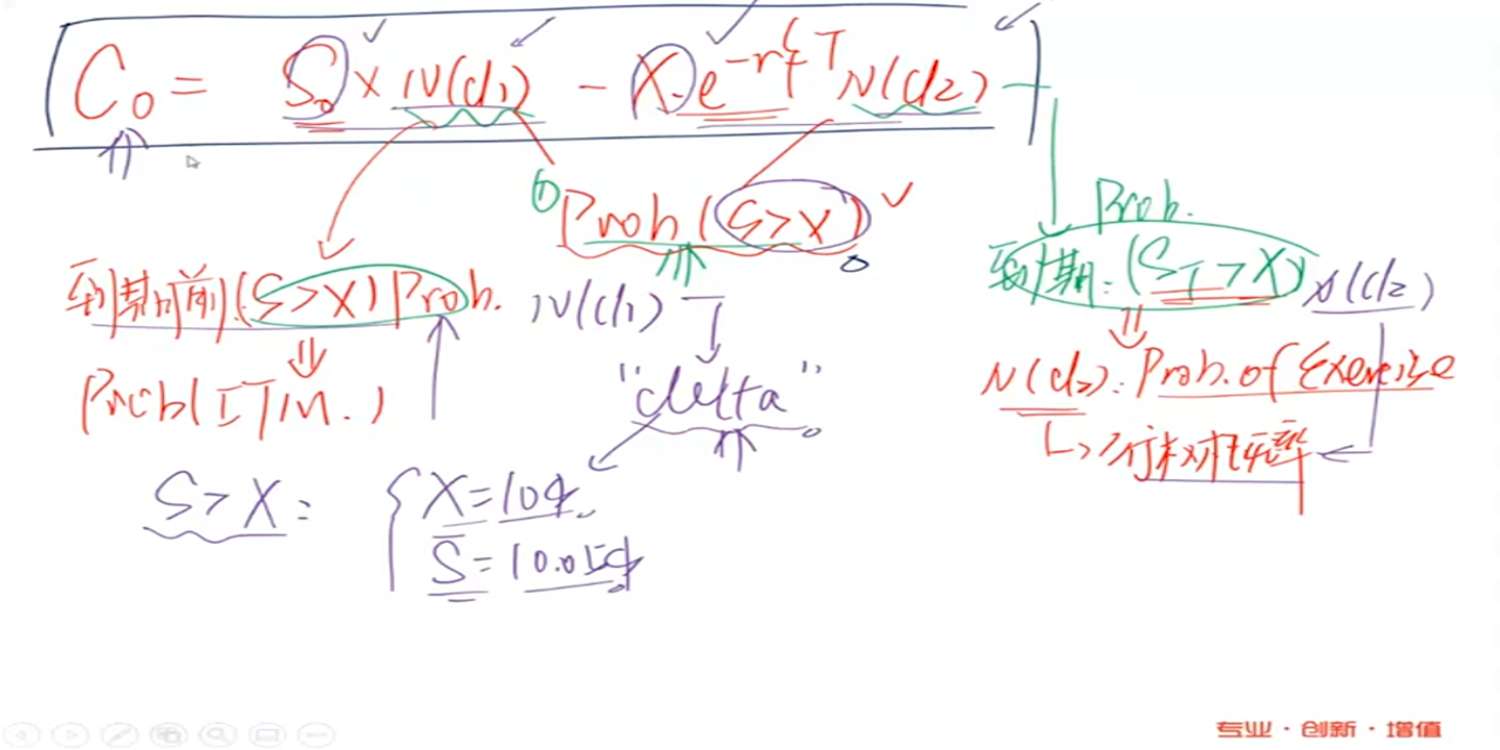 C₀ = S₀ × N(d₁) − X·e^(−r_f T) N(d₂)
① Prob(S>X)
Prob.
到期前:(S>X) Prob.
N(d₁)
到期:(S_T>X) N(d₂)
Prob(ITM.)
"delta"
N(d₂): Prob. of Exercise
↳行权概率
S>X:
X=10¢
S=10.05¢
专业·创新·增值